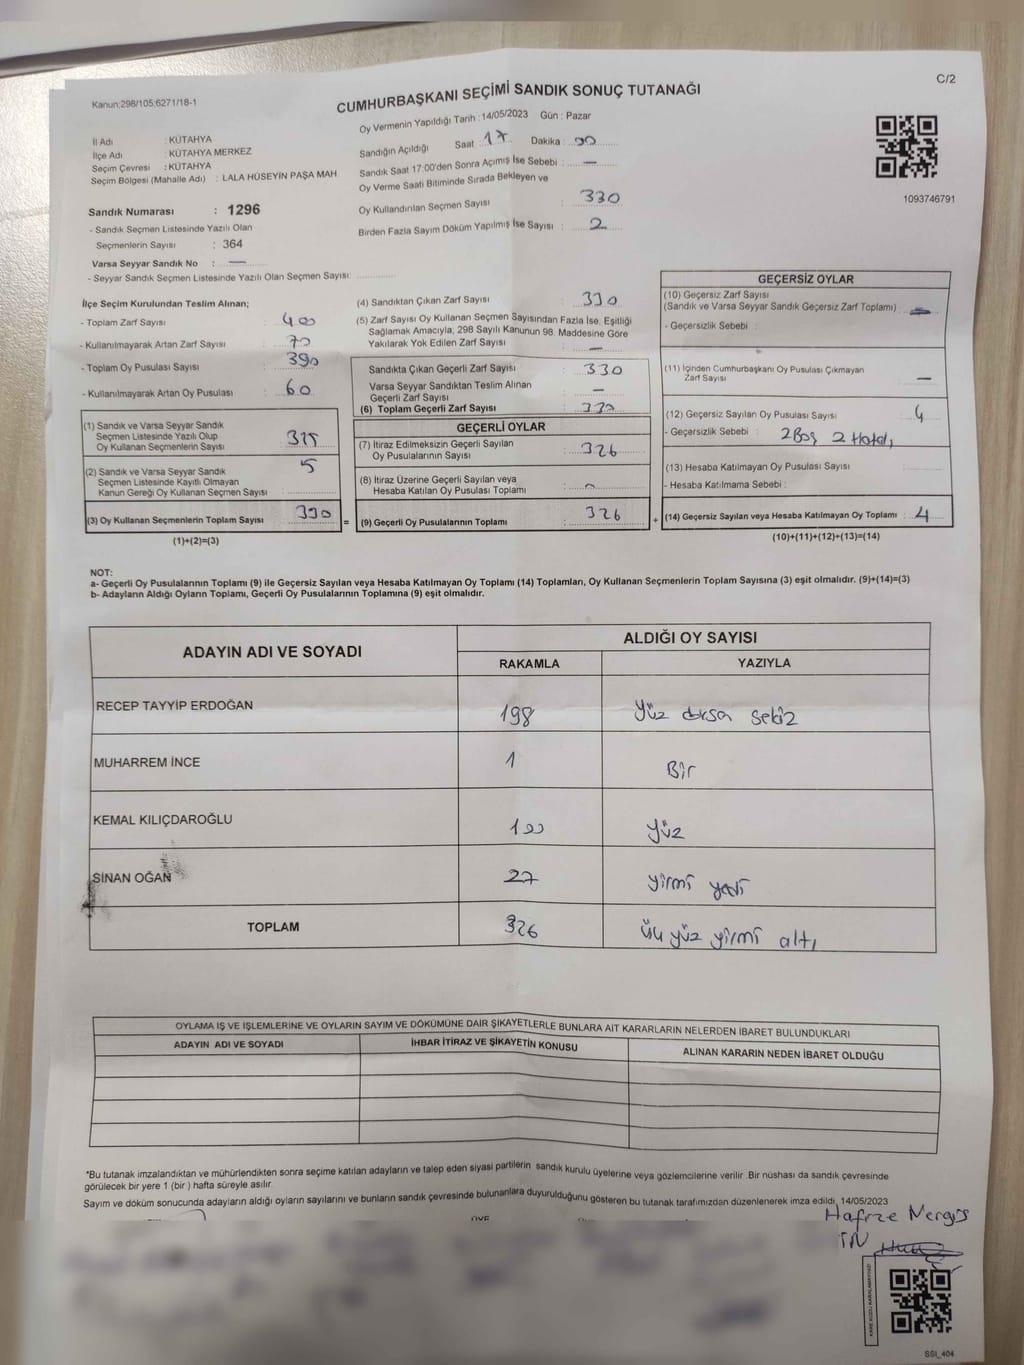 C/2
Kanun;298/105;6271/18-1
CUMHURBAŞKANI SEÇİMİ SANDIK SONUÇ TUTANAĞI
Oy Vermenin Yapıldığı Tarih : 14/05/2023 Gün : Pazar
İl Adı : KÜTAHYA
İlçe Adı : KÜTAHYA MERKEZ
Seçim Çevresi : KÜTAHYA
Seçim Bölgesi (Mahalle Adı) : LALA HÜSEYİN PAŞA MAH
Sandık Numarası : 1296
- Sandık Seçmen Listesinde Yazılı Olan
Seçmenlerin Sayısı : 364
Varsa Seyyar Sandık No : —
- Seyyar Sandık Seçmen Listesinde Yazılı Olan Seçmen Sayısı:
Sandığın Açıldığı Saat : 17 Dakika : 00
Sandık Saat 17:00'den Sonra Açımış İse Sebebi : —
Oy Verme Saati Bitiminde Sırada Bekleyen ve
Oy Kullandırılan Seçmen Sayısı : 330
Birden Fazla Sayım Döküm Yapılmış İse Sayısı : 2
1093746791
İlçe Seçim Kurulundan Teslim Alınan;
- Toplam Zarf Sayısı : 400
- Kullanılmayarak Artan Zarf Sayısı : 70
- Toplam Oy Pusulası Sayısı : 390
- Kullanılmayarak Artan Oy Pusulası : 60
(1) Sandık ve Varsa Seyyar Sandık
Seçmen Listesinde Yazılı Olup
Oy Kullanan Seçmenlerin Sayısı : 325
(2) Sandık ve Varsa Seyyar Sandık
Seçmen Listesinde Kayıtlı Olmayan
Kanun Gereği Oy Kullanan Seçmen Sayısı : 5
(3) Oy Kullanan Seçmenlerin Toplam Sayısı : 330 =
(1)+(2)=(3)
(4) Sandıktan Çıkan Zarf Sayısı : 330
(5) Zarf Sayısı Oy Kullanan Seçmen Sayısından Fazla İse, Eşitliği
Sağlamak Amacıyla; 298 Sayılı Kanunun 98. Maddesine Göre
Yakılarak Yok Edilen Zarf Sayısı : —
Sandıkta Çıkan Geçerli Zarf Sayısı : 330
Varsa Seyyar Sandıktan Teslim Alınan
Geçerli Zarf Sayısı : —
(6) Toplam Geçerli Zarf Sayısı : 330
GEÇERLİ OYLAR
(7) İtiraz Edilmeksizin Geçerli Sayılan
Oy Pusulalarının Sayısı : 326
(8) İtiraz Üzerine Geçerli Sayılan veya
Hesaba Katılan Oy Pusulası Toplamı : 0
(9) Geçerli Oy Pusulalarının Toplamı : 326 +
GEÇERSİZ OYLAR
(10) Geçersiz Zarf Sayısı
(Sandık ve Varsa Seyyar Sandık Geçersiz Zarf Toplamı) : —
- Geçersizlik Sebebi :
(11) İçinden Cumhurbaşkanı Oy Pusulası Çıkmayan
Zarf Sayısı : —
(12) Geçersiz Sayılan Oy Pusulası Sayısı : 4
- Geçersizlik Sebebi : 2 Boş 2 Hatalı
(13) Hesaba Katılmayan Oy Pusulası Sayısı :
- Hesaba Katılmama Sebebi :
(14) Geçersiz Sayılan veya Hesaba Katılmayan Oy Toplamı : 4
(10)+(11)+(12)+(13)=(14)
NOT:
a- Geçerli Oy Pusulalarının Toplamı (9) ile Geçersiz Sayılan veya Hesaba Katılmayan Oy Toplamı (14) Toplamları, Oy Kullanan Seçmenlerin Toplam Sayısına (3) eşit olmalıdır. (9)+(14)=(3)
b- Adayların Aldığı Oyların Toplamı, Geçerli Oy Pusulalarının Toplamına (9) eşit olmalıdır.
ADAYIN ADI VE SOYADI ALDIĞI OY SAYISI
RAKAMLA YAZIYLA
RECEP TAYYİP ERDOĞAN 198 Yüz doksan sekiz
MUHARREM İNCE 1 Bir
KEMAL KILIÇDAROĞLU 100 Yüz
SİNAN OĞAN 27 yirmi yedi
TOPLAM 326 üç yüz yirmi altı
OYLAMA İŞ VE İŞLEMLERİNE VE OYLARIN SAYIM VE DÖKÜMÜNE DAİR ŞİKAYETLERLE BUNLARA AİT KARARLARIN NELERDEN İBARET BULUNDUKLARI
ADAYIN ADI VE SOYADI İHBAR İTİRAZ VE ŞİKAYETİN KONUSU ALINAN KARARIN NEDEN İBARET OLDUĞU
*Bu tutanak imzalandıktan ve mühürlendikten sonra seçime katılan adayların ve talep eden siyasi partilerin sandık kurulu üyelerine veya gözlemcilerine verilir .Bir nüshası da sandık çevresinde
görülecek bir yere 1 (bir ) hafta süreyle asılır.
Sayım ve döküm sonucunda adayların aldığı oyların sayılarını ve bunların sandık çevresinde bulunanlara duyurulduğunu gösteren bu tutanak tarafımızdan düzenlenerek imza edildi, 14/05/2023
ÜYE
KARE KODU KARALAMAYINIZ!
SSI_404